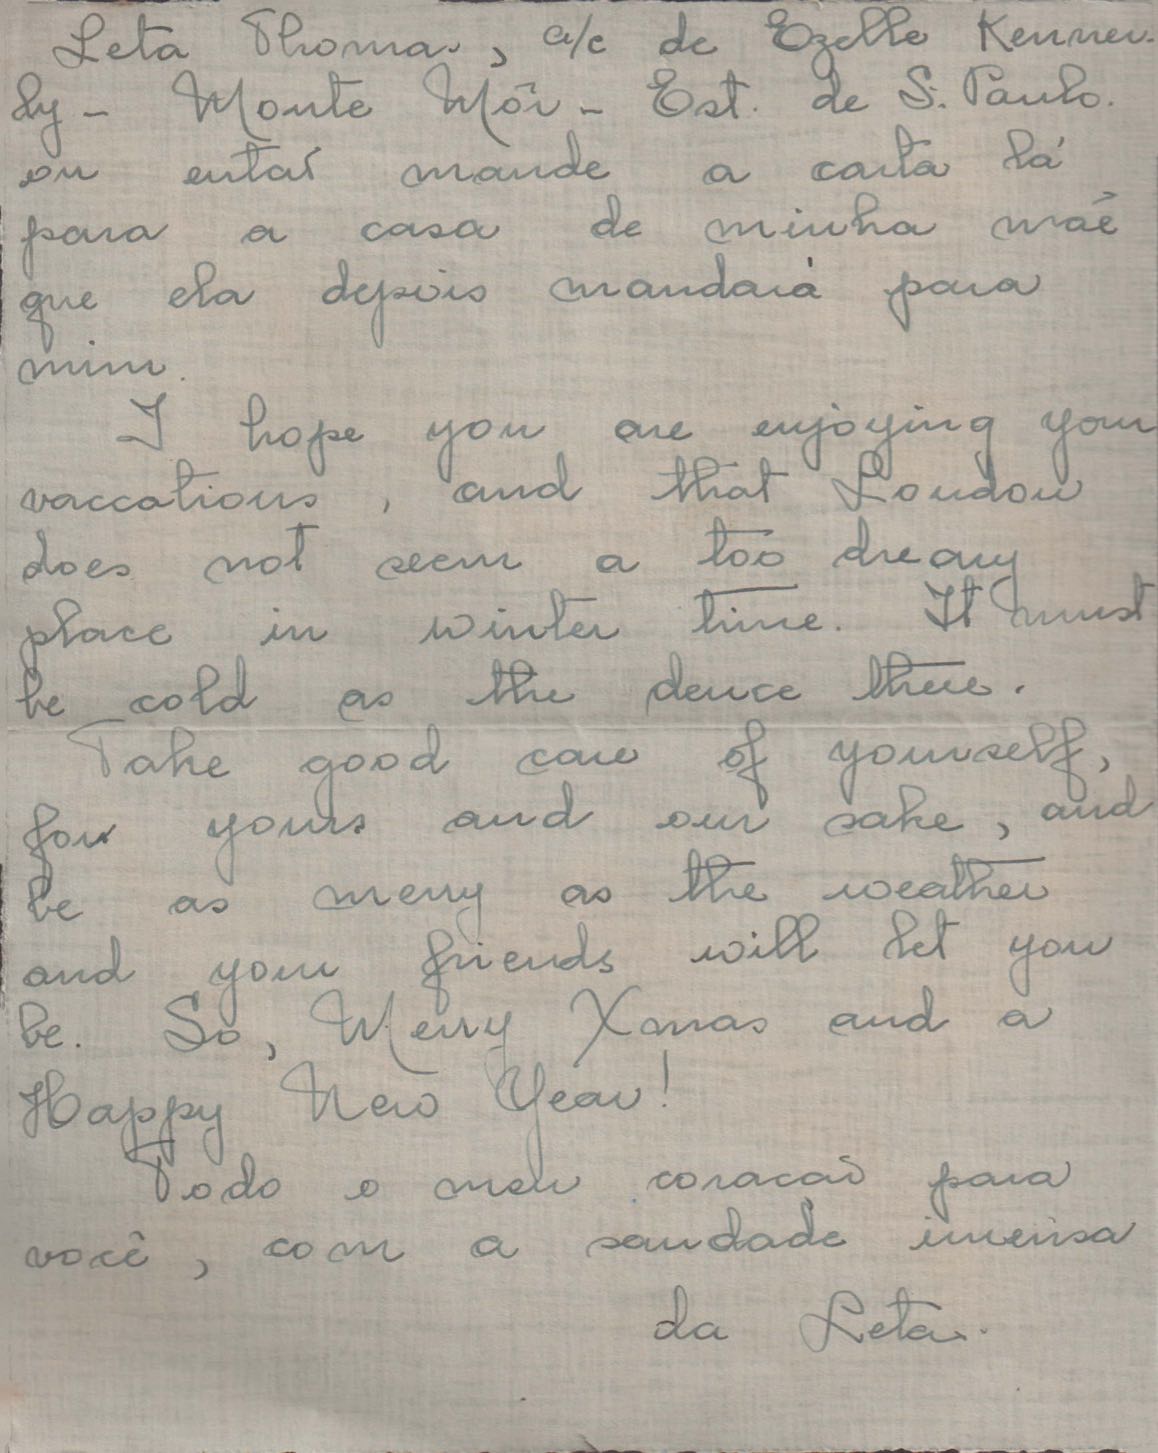 Leta Thomas, a/c de Ezelle Kenner-
ly - Monte Môr - Est. de S. Paulo.
ou entaõ mande a carta lá
para a casa de minha mãe
que ela depois mandará para
mim.
I hope you are enjoying your
vaccations, and that London
does not seem a too dreary
place in winter time. It must
be cold as the deuce there.
Take good care of yourself,
for yours and our sake, and
be as merry as the weather
and your friends will let you
be. So, Merry Xmas and a
Happy New Year!
Todo o meu coracaõ para
você, com a saudade imensa
da Leta.